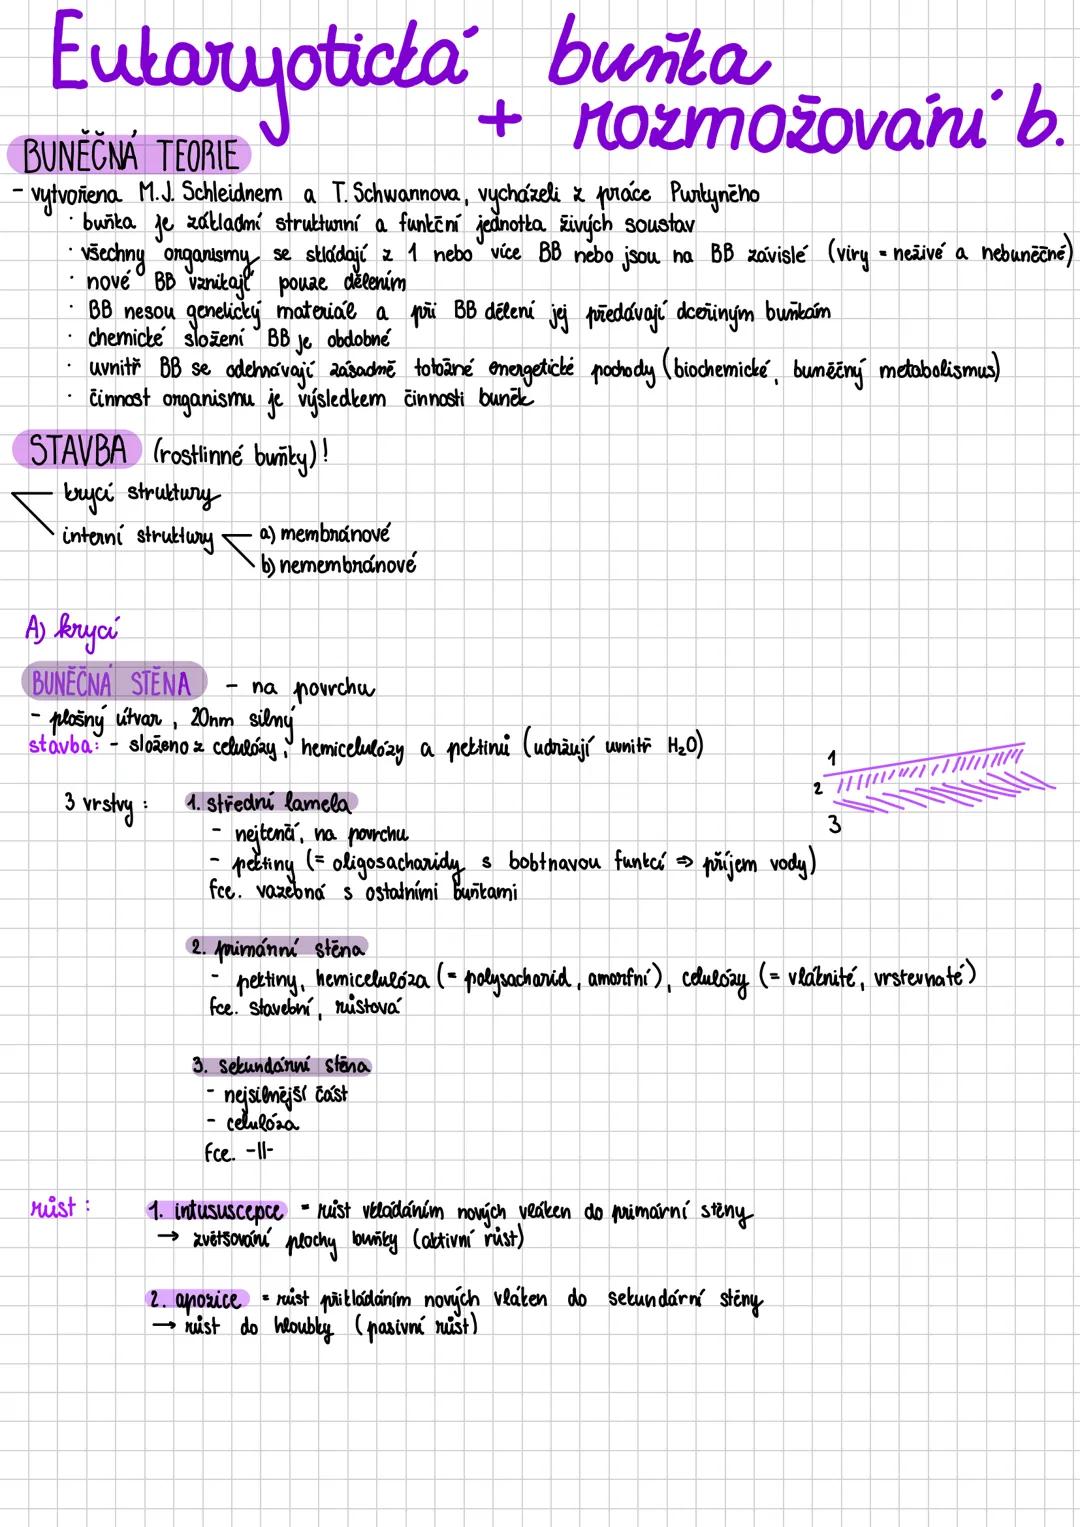 Eukaryotická buňka
+ rozmožování b.
BUNĚČNÁ TEORIE
- vytvořena M.J. Schleidnem a T. Schwannova, vycházeli z práce Purkyného
· buňka je základní strukturní a funkční jednotka živých soustav
· všechny organismy se skládají z 1 nebo více BB nebo jsou na BB závislé (viry = neživé a nebuněčné)
· nové BB vznikají pouze dělením
· BB nesou genetický materiál a při BB dělení jej předávají dceřiným buňkám
· chemické složení BB je obdobné
· uvnitř BB se odehrávají zásadně totožné energetické pochody (biochemické, buněčný metabolismus)
· činnost organismu je výsledkem činnosti buněk
STAVBA (rostlinné buňky)!
krycí struktury
interní struktury
a) membránové
b) nemembránové
A) krycí
BUNĚČNÁ STĚNA - na povrchu
- plošný útvar, 20nm silný
stavba: - složeno z celulózy, hemicelulózy a pektinů (udržují uvnitř H₂O)
1
2
3
3 vrstvy: 1. střední lamela
- nejtenčí, na povrchu
- pektiny (= oligosacharidy s bobtnavou funkcí ⇒ příjem vody)
fce. vazebná s ostatními buňkami
2. primární stěna
- pektiny, hemicelulóza (= polysacharid, amorfní), celulózy (= vláknité, vrstevnaté)
fce. stavební, růstová
3. sekundární stěna
- nejsilnější část
- celulóza
fce. -||-
růst: 1. intususcepce = růst vkládáním nových vláken do primární stěny
→ zvětšování plochy buňky (aktivní růst)
2. apozice = růst přikládáním nových vláken do sekundární stěny
→ růst do hloubky (pasivní růst)